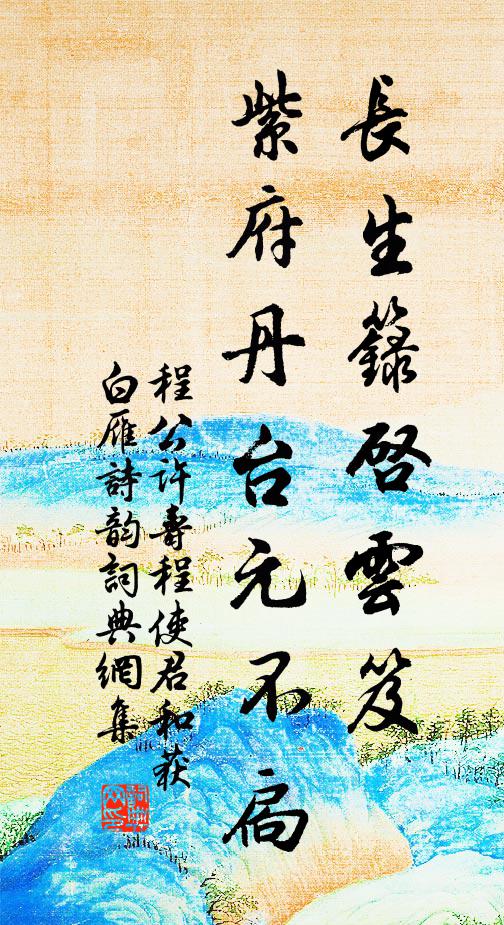 長生籙啓雲笈
紫府丹台元不扃
程公許壽程使君和荻
白雁詩韵詞典網集